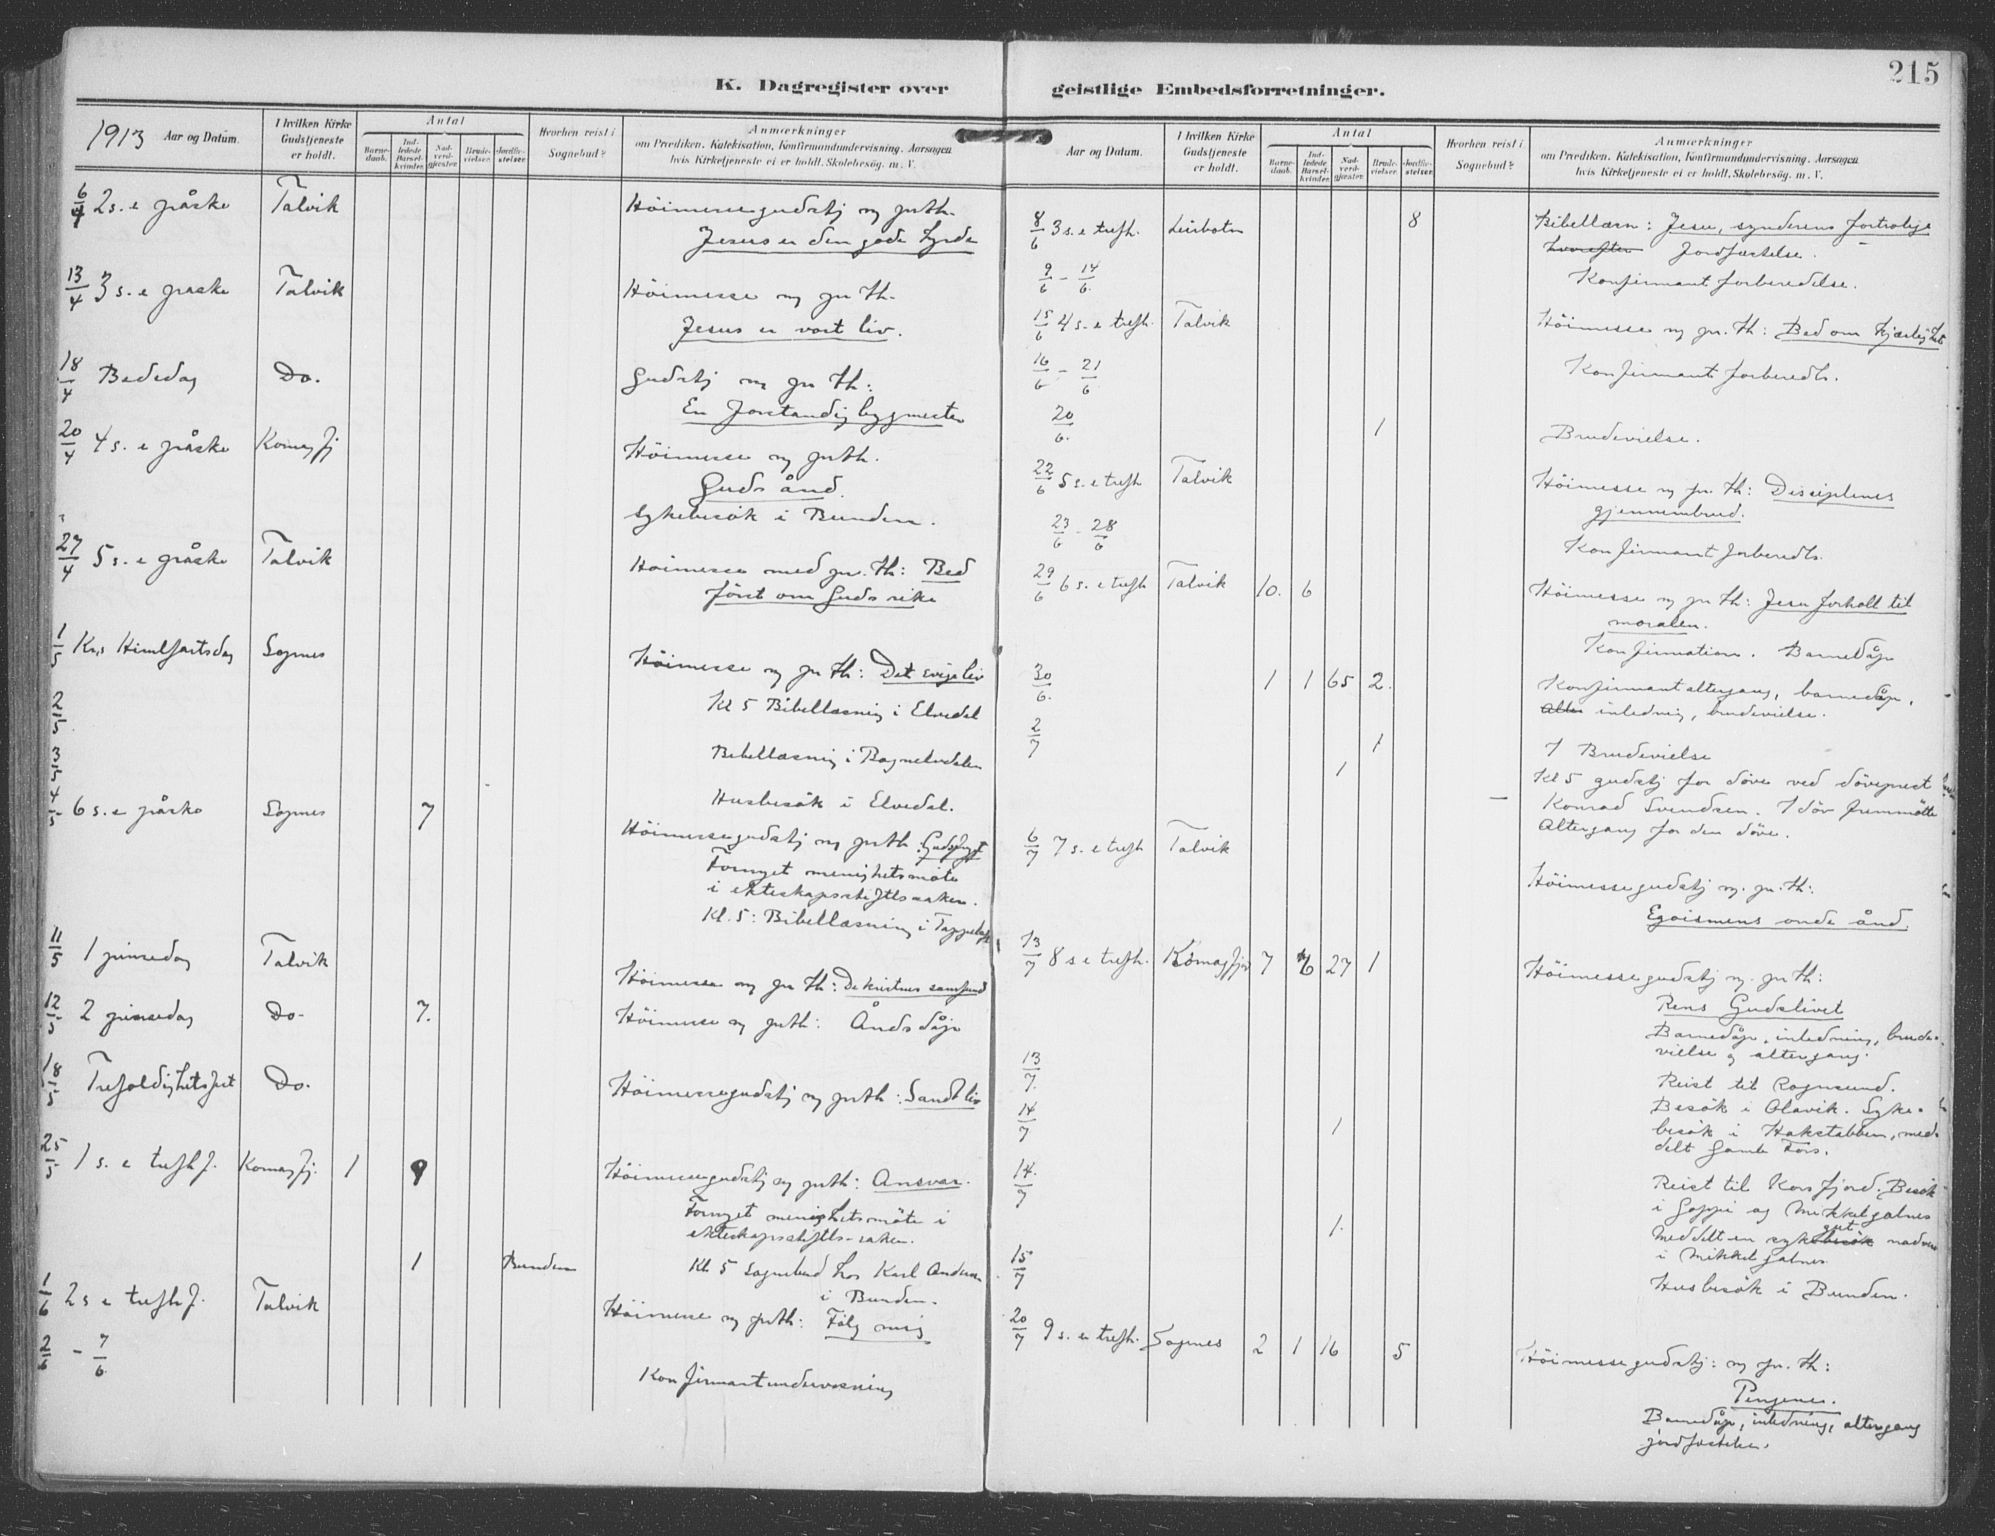 215
K. Dagregister over geistlige Embedsforretninger.
1913 Aar og Datum.
I hvilken Kirke Gudstjeneste er holdt.
Antal
Barnedaab.
Indledede Barselkvinder.
Nadverdgjæster.
Brudevielser.
Jordfæstelser.
Hvorhen reist i Sognebud?
Anmærkninger
om Prædiken. Katekisation, Konfirmandundervisning. Aarsagen
hvis Kirketjeneste ei er holdt. Skolebesøg. m. V.
6/4 2 s. e påske Talvik Höimessegudstj og pr th.
Jesus er den gode hyrde
13/4 3 s. e påske Talvik Höimesse og pr th.
Jesus er vort liv.
18/4 Bededag Do. Gudstj og pr th:
En forstandig bygmester
20/4 4 s. e påske Komagfj Höimesse og pr th.
Guds ånd.
Sykebesök i Bunden.
27/4 5 s. e påske Talvik Höimesse med pr. th: Bed
först om Guds rike
1/5 Kr. Himlfartsdag Sopnes Höimesse og pr th: Det evige liv
Kl 5 Bibellæsning i Elvedal
2/5 Bibellæsning i
3/5 Husbesök i Elvedal.
4/5 6 s. e påske Sopnes 7 Höimessegudstj og pr th. Gudsfrygt
Fornyet menighetsmöte
i ekteskapsstiftls saken.
Kl. 5: Bibellæsning i
11/5 1 pinsedag Talvik Höimesse og pr th: De kristnes samfund
12/5 2 pinsedag Do. 7. Höimesse og pr th: Åndsdåp
18/5 Trefoldighetsfest Do. Höimessegudstj og pr th: Sandt liv
25/5 1 s. e trefh f. Komagfj. 1 9 Höimessegudstj og pr th: Ansvar.
Fornyet menighetsmöte i
ekteskapsstiftls-saken.
1 Bunden Kl. 5 Sognebud hos Karl Andersen
i Bunden.
1/6 2 s e trefh f. Talvik Höimesse og pr th: Fölg mig
2/6 - 7/6 Konfirmantundervisning
Aar og Datum.
I hvilken Kirke Gudstjeneste er holdt.
Antal
Barnedaab.
Indledede Barselkvinder.
Nadverdgjæster.
Brudevielser.
Jordfæstelser.
Hvorhen reist i Sognebud?
Anmærkninger
om Prædiken. Katekisation, Konfirmandundervisning. Aarsagen
hvis Kirketjeneste ei er holdt. Skolebesøg. m. V.
8/6 3 s. e trefh. Leirbotn 8 Bibellæsn: Jesu, synderens fortrolige
hvorefter Jordfæstelse.
9/6 - 14/6 Konfirmant forberedelse.
15/6 4 s. e trefh. Talvik Höimesse og pr. th: Bed om kjærlighet
16/6 - 21/6 Konfirmant forberedls.
20/6. 1 Brudevielse.
22/6 5 s. e trefh Talvik Höimesse og pr. th: Disciplenes
gjennembrud.
23/6 - 28/6 Konfirmant forberedls.
29/6 6 s. e trefh Talvik 10. 6 Höimesse og pr th: Jesu forhold til
moralen.
Konfirmation. Barnedåp
30/6. 1 1 65 2. Konfirmantaltergang, barnedåp,
Alter inledning, brudevielse.
2/7 1 1 Brudevielse
1 Kl 5 gudstj for döve ved döveprest
Konrad Svendsen. 1 döv fremmötte
Altergang for den döve.
6/7 7 s. e trefh Talvik Höimessegudstj og. pr. th:
Egoismens onde ånd.
13/7 8 s e trefh. Komagfjord 7 6 27 1 Höimessegudstj og. pr th:
Rens Gudslivet
Barnedåp, inledning, brude-
vielse og altergang.
13/7. Reist til Rognsund.
14/7 1 Besök i Olavik. Syke-
besök i Hakstabben, med-
delt Gamle Fors.
14/7 Reist til Korsfjord. Besök
i Goppi og Mikkelgalnes
1. Meddelt en sykebesök nadverd
i Mikkelgalnes
15/7 Husbesök i Bunden.
20/7 9 s. e trefh. Sopnes 2 1 16 5 Höimessegudstj: og pr. th:
Pengenes.
Barnedåp, inledning, altergang
jordfæstelse.